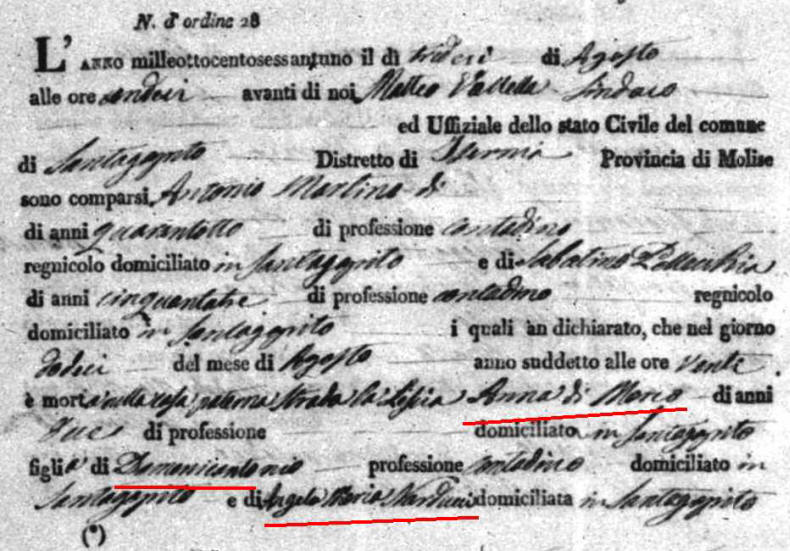 N. d'ordine 28
L'ANNO milleottocentosessantuno il dì tredici di Agosto
alle ore sedici avanti di noi Matteo Valletta Sindaco
ed Uffiziale dello stato Civile del comune
di Santagapito Distretto di Isernia Provincia di Molise
sono comparsi Antonio Martino di
di anni quarantotto di professione contadino
regnicolo domiciliato in Santagapito e di Sabatino Pellecchia
di anni cinquantatre di professione contadino regnicolo
domiciliato in Santagapito i quali àn dichiarato, che nel giorno
dodici del mese di Agosto anno suddetto alle ore venti
è morta nella casa paterna strada la Anna di Marco di anni
due di professione domiciliato in Santagapito
figlia di Domenicantonio professione contadino domiciliato in
Santagapito e di Angela Maria Narducci domiciliata in Santagapito
(*)